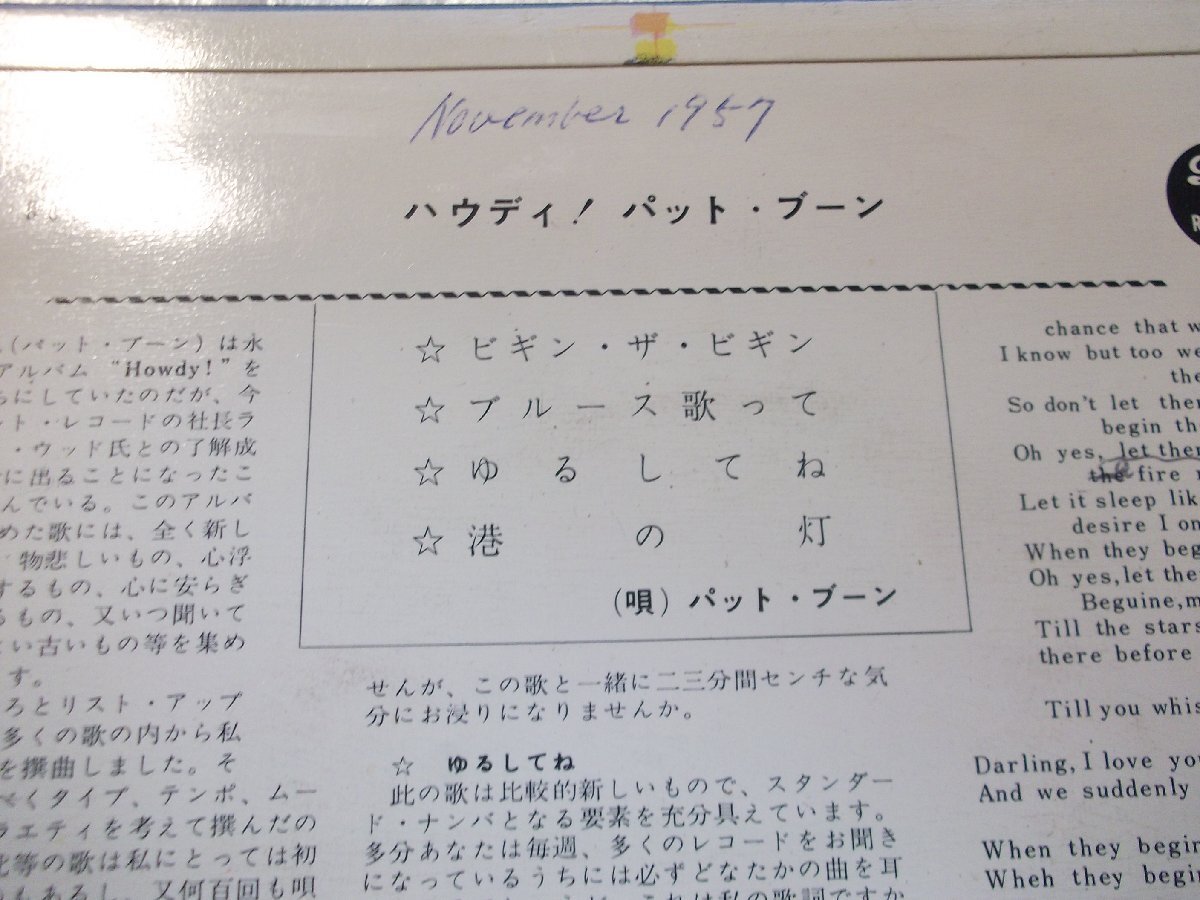 November 1957
ハウディ! パット・ブーン
(パット・ブーン)は永
アルバム “Howdy!” を
にしていたのだが、今
ト・レコードの社長ラ
・ウッド氏との了解成
に出ることになったこ
んでいる。このアルバ
めた歌には、全く新し
物悲しいもの、心浮
するもの、心に安らぎ
るもの、又いつ聞いて
い古いもの等を集め
す。
ろとリスト・アップ
多くの歌の内から私
を撰曲しました。そ
べくタイプ、テンポ、ムー
ラエティを考えて撰んだの
此等の歌は私にとっては初
のもあるし、又何百回も唄
☆ ビギン・ザ・ビギン
☆ ブルース歌って
☆ ゆるしてね
☆ 港の灯
(唄) パット・ブーン
せんが、この歌と一緒に二三分間センチな気
分にお浸りになりませんか。
☆ ゆるしてね
此の歌は比較的新しいもので、スタンダー
ド・ナンバとなる要素を充分具えています。
多分あなたは毎週、多くのレコードをお聞き
になっているうちには必ずどなたかの曲を耳
chance that
I know but too
So don't let
begin
Oh yes, let
the a fire
Let it sleep
desire I
When they
Oh yes, let
Beguine,
Till the stars
there before
Till you
Darling, I love
And we suddenly
When they begin
Wheh they begin